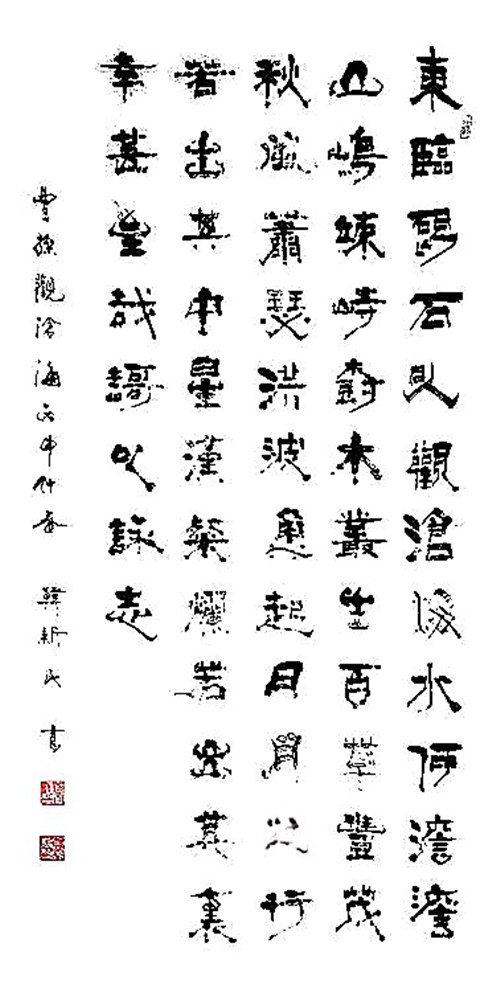 東臨碣石以觀滄海水何澹澹
山嶋竦峙樹木叢生百草豐茂
秋風蕭瑟洪波涌起日月之行
若出其中星漢粲爛若出其裏
幸甚至哉謌以詠志
曹操觀滄海丙申仲春 韓新民 書